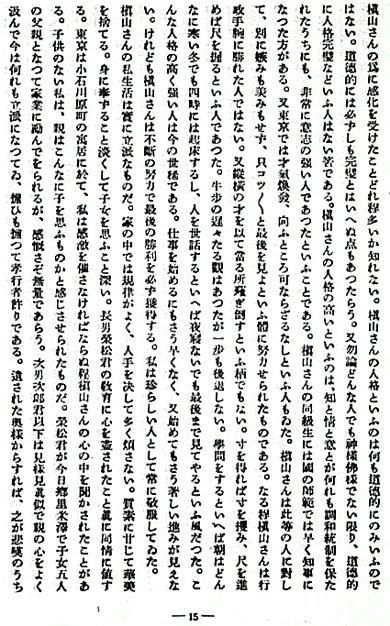 槇山さんの爲に感化を受けたことどれ程多いか知れない。槇山さんの人格といふのは何も道德的にのみいふので
はない。道德的には必ずしも完璧とはいへぬ点もあつたらう。又勿論どんな人でも神様佛様でない限り、道德的
に人格完璧などいふ人はない筈である。槇山さんの人格の高いといふのは、知と情と意とが何れも調和統制を保た
れたうちにも、非常に意志の强い人であつたといふことである。槇山さんの同級生には國の師範では早く知事に
なつた方がある。又東京では才氣煥發、向ふところ可ならざるなしといふ人もゐた。槇山さんは此等の人に對し
て、別に嫉みも羨みもせず、只コツ〳〵と最後を見よといふ體に努力せられたものである。なる程槇山さんは行
政手腕に勝れた人ではない。又縱橫の才を以て當る所殪ぎ倒すといふ柄でもない。寸を得れば寸を護み、尺を進
めば尺を掘るといふ人であつた。牛歩の遲々たる觀はあつたが一步も後退しない。學問をするといへば朝はどん
なに寒い冬でも四時には起床するし、人を世話するといへば夜寢ないでも最後まで見てやるといふ風だつた。こ
んな人格の高く强い人は今の世稀である。仕事を始めるにもさう早くなく、又始めてもさう著しい進みが見えな
い。けれども槇山さんは不斷の努力で最後の勝利を必ず獲得する。私は珍らしい人として常に敬服してゐた。
槇山さんの私生活は實に立派なものだ。家の中では規律がよく、人手を決して多く煩さない。質素に甘じて華美
を捨てる。身に奉ずること淡くして子女を思ふこと深い。長男榮松君の敎育に心を盡されたこと眞に同情に値す
る。東京は小石川原町の寓居に於て、私は感激を催さなければならぬ程槇山さんの心の中を聞かされたことがあ
る。子供のない私は、親はこんなに子を思ふものかと感じさせられたものだ。榮松君が今日鄕里米澤で子女五人
の父親となつて家業に勵んでをられるが、感慨さぞ無量であらう。次男次郞君以下は見樣見眞似で親の心をよく
汲んで今は何れも立派になつてゐ、揃ひも揃つて孝行者許りである。遺された奧樣からすれば、之が悲嘆のうち
—15—